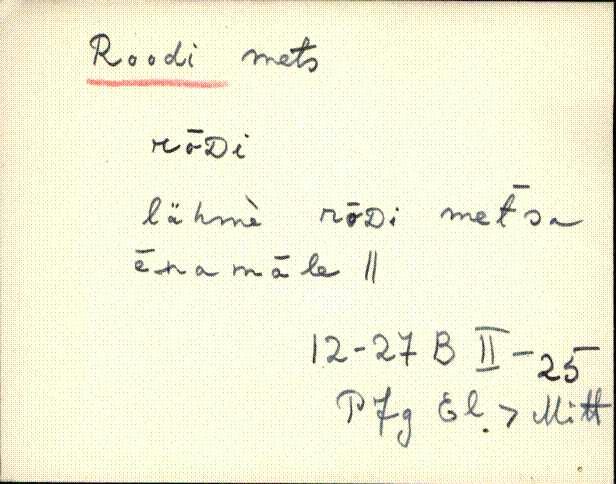 Roodi mets
rōDi
lähmè rōDi met̄sa
ēnamāle ||
12-27 B II-25
PJg El. > Mitt